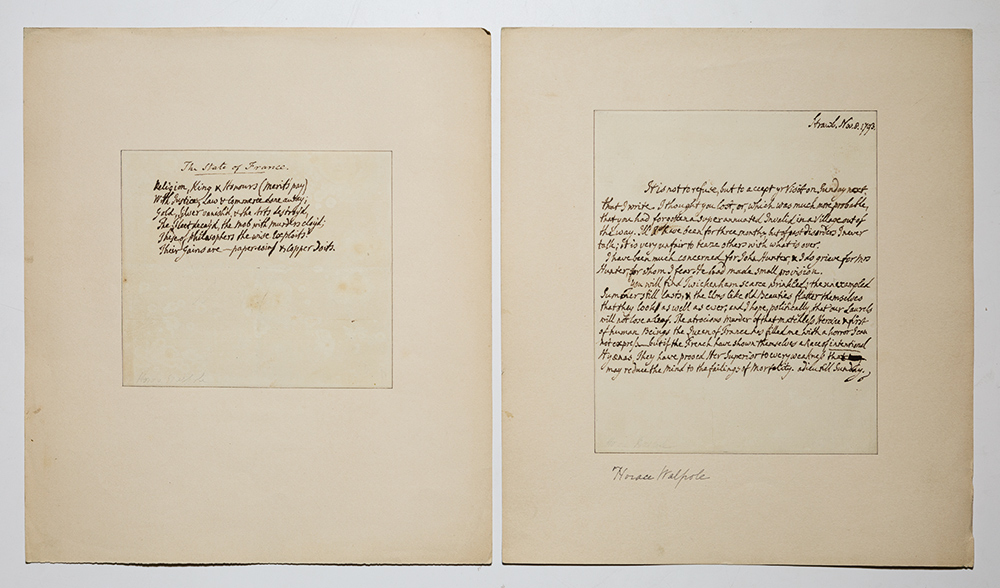 The State of France.
Religion, King & Honours (merit's pay)
With Justice, Law & Commerce done away;
Gold, silver vanish'd, & the Arts destroy'd,
The Fleet decay'd, the Mob with murders cloy'd;
Philosophers the wise Exploits!
Their Gains are — paper-coin & Copper Doits.
Strawb. Nov. 8. 1793.
It is not to refuse, but to accept yr Visit on Sunday next
that I write. I thought you lost, or, which was much more probable,
that you had forgotten a superannuated Invalid in a Village out of
the way. Ill I have been for three months, but of past disorders I never
talk; it is very unfair to teaze others with what is over.
I have been much concerned for John Hunter, & I do grieve for Mrs
Hunter, for whom I fear He had made small provision.
You will find Twickenham scarce wrinkled; the unexampled
Summer still lasts, & the Elms like old Beauties flatter themselves
that they look as well as ever; and I hope, politically, that our Laurels
will not lose a leaf. The atrocious murder of that matchless Heroine & first
of human Beings the Queen of France has filled me with a horror I can
not express — but if the French have shown themselves a Race of intentional
Hyænas, They have proved Her superior to every weakness that
may reduce the Mind to the failings of Mortality. adieu till Sunday.
Horace Walpole